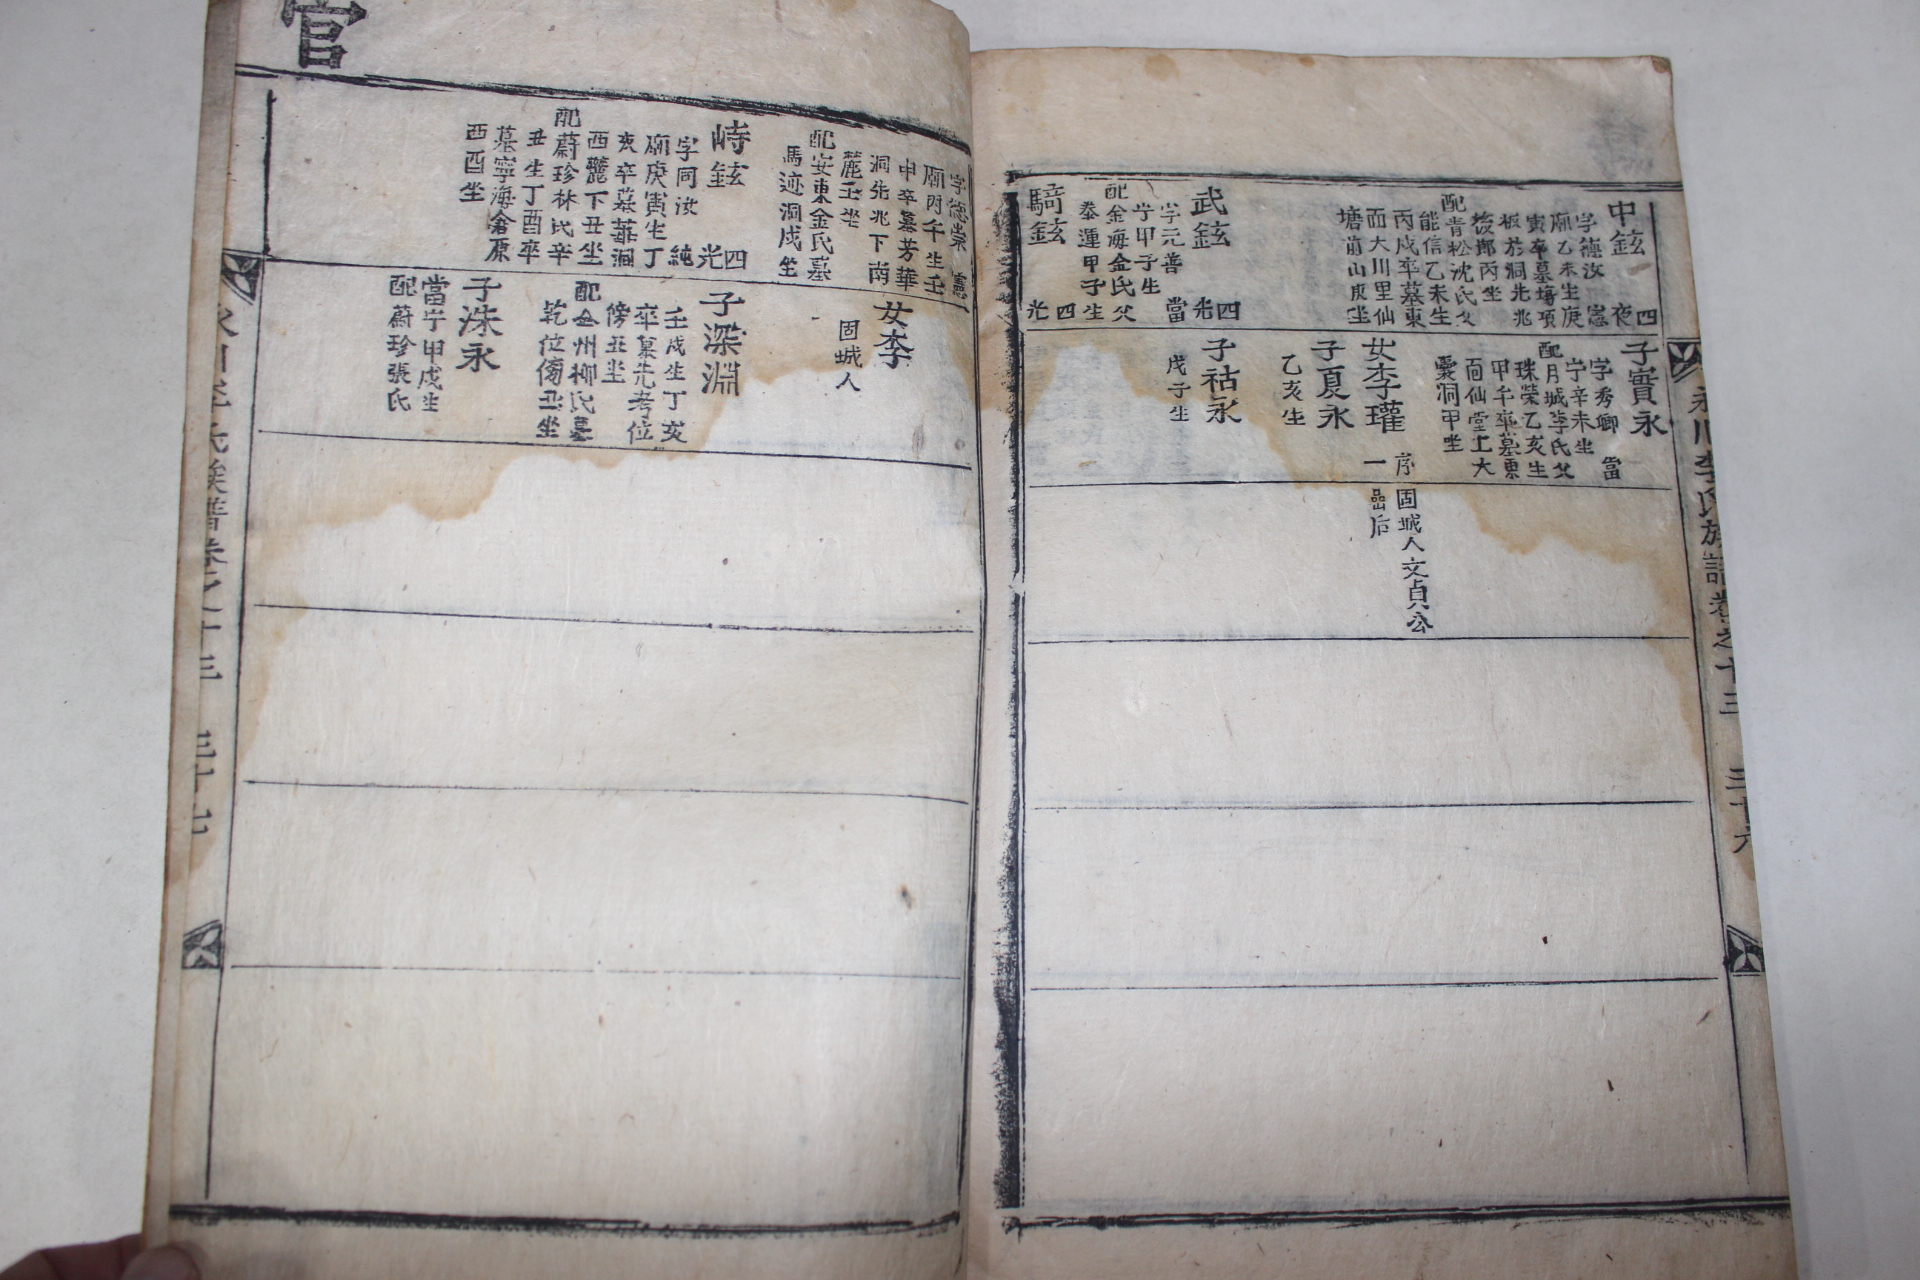 中鉉
字德汝 憲
廟乙未生庚
寅卒墓塢項
板於洞先兆
後鄭丙坐
配青松沈氏父
能信乙未生
丙戌卒墓東
面大川里仙
塘前山庚坐
四
夜
武鉉
字元善
宁甲子生
配金海金氏父
泰運甲子生
四
光
當
騎鉉
四
光
子實永
字秀卿 當
宁辛未生
配月城李氏父
珠榮乙亥生
甲午卒墓東
面仙堂上大
洞甲坐
女李瓘
序
一
固城人文貞公
嵒后
子夏永
乙亥生
子祜永
戊子生
永川李氏族譜卷之十三 三十六
字德崇 憲
廟丙午生壬
申卒墓芳華
洞先兆下南
麓壬坐
配安東金氏墓
馬迹洞戌坐
峙鉉
四
光
字同汝 純
廟庚寅生丁
亥卒墓華洞
西麓下丑坐
配蔚珍林氏辛
丑生丁酉卒
墓寧海倉原
酉酉坐
女李
固城人
子深淵
壬戌生丁亥
卒墓先考位
傍丑坐
配全州柳氏墓
乾位傍丑坐
子洙永
當宁甲戌生
配蔚珍張氏
官